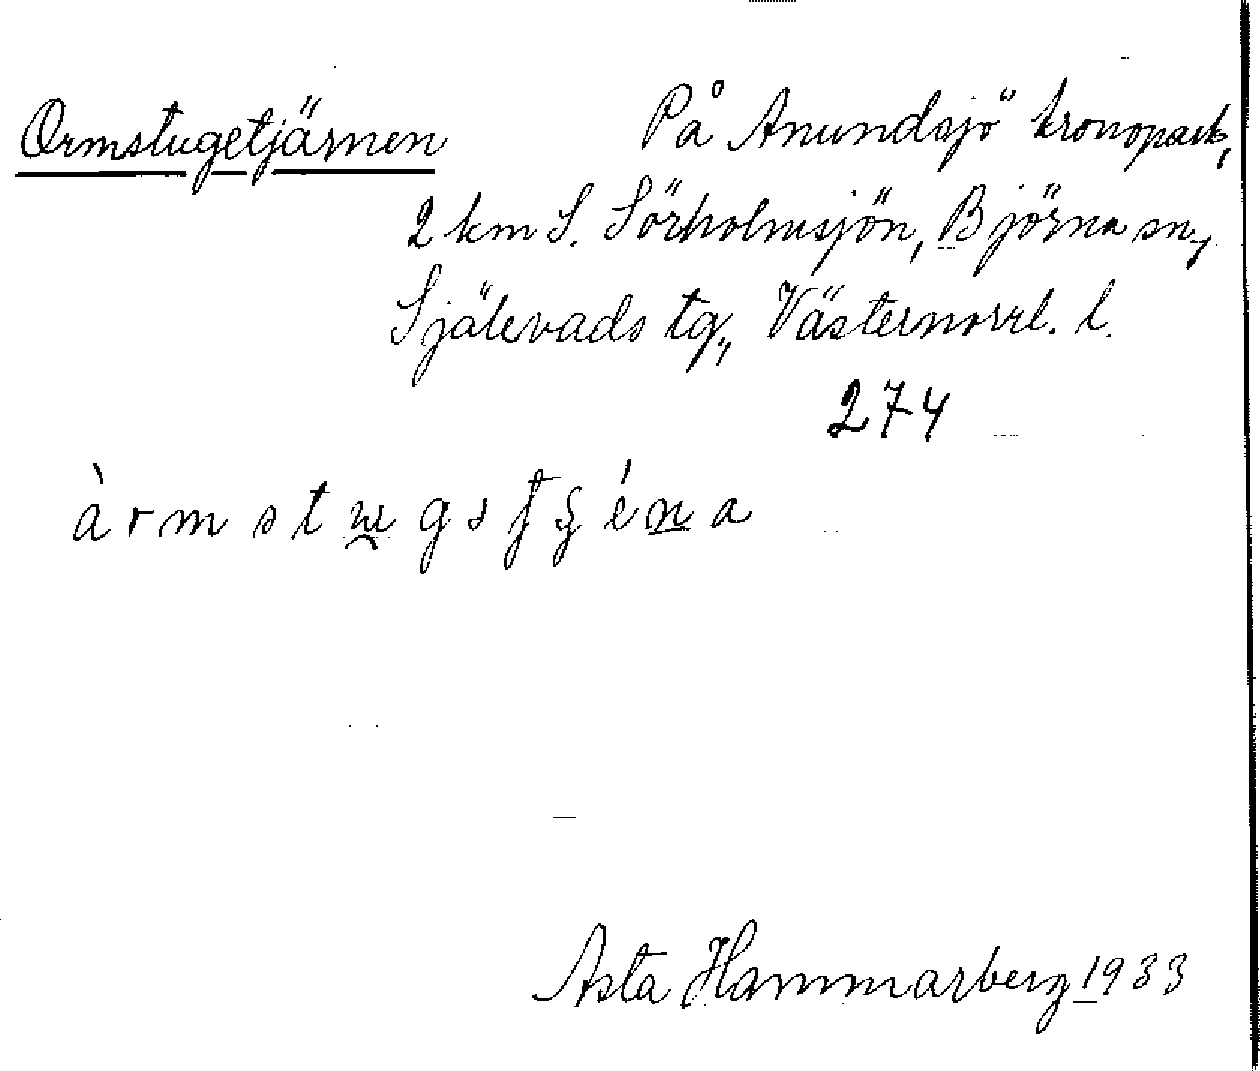 Ormstugetjärnen På Anundsjö kronopark,
2 km S. Sörholmsjön, Björna sn,
Själevads tg., Västernorrl. l.
274
Asta Hammarberg 1933